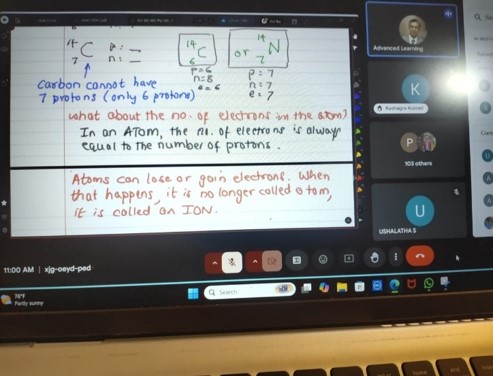 14
C p: _
7 n: _
14
C
6
p=6
n=8
e=6
or
14
N
7
p = 7
n = 7
e = 7
Carbon cannot have
7 protons (only 6 protons)
what about the no. of electrons in the atom?
In an ATom, the no. of electrons is always
equal to the number of protons.
Atoms can lose or gain electrons. When
that happens, it is no longer called atom,
it is called an ION.
Advanced Learning
K
P
103 others
U
USHALATHA S
11:00 AM | xjg-oeyd-ped
76°F
Partly sunny
Search